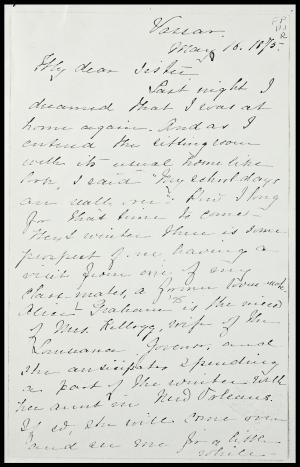 Vassar.
May 16. 1875.
My dear Sister
Last night I
dreamed that I was at
home again. And as I
entered the sitting room
with its usual home like
look, I said "My school days
are really over". How I long
for that time to come.
Next winter there is some
prospect of me having a
visit from one of my
class-mates, a former room-mate
Alice Graham is the niece
of Mrs. Kellogg, wife of the
Louisiana Governor, and
she anticipates spending
a part of the winter with
her aunt in New Orleans.
If so, she will come over
and see me for a little
while—